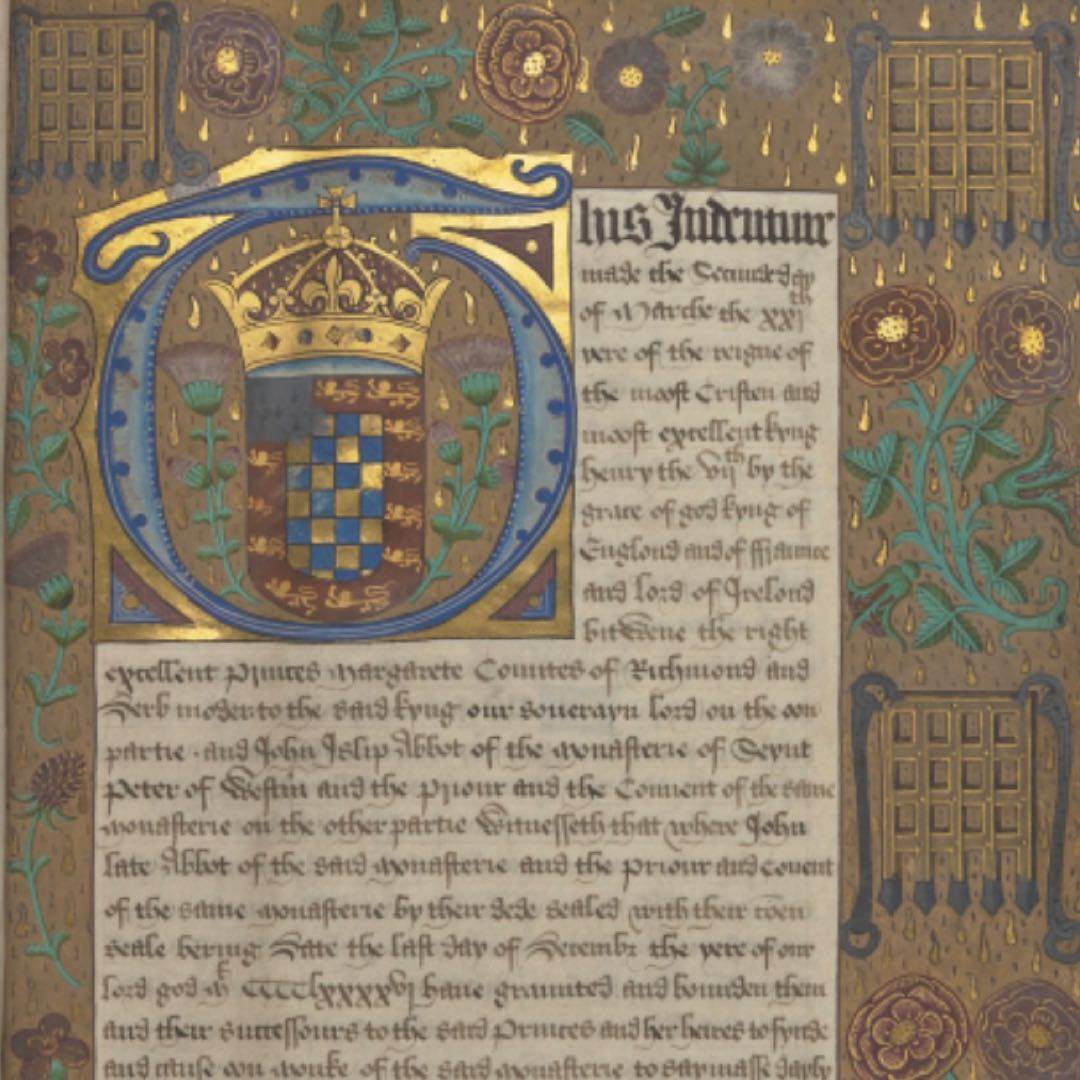 This Indenture
made the Secunde day
of Marche the xxjth
yere of the reigne of
the moost Cristen and
moost excellent kyng
henry the vijth by the
grace of god kyng of
Englond and of ffraunce
and lord of Irelond
bitwene the right
excellent Princes Margarete Countes of Richmond and
Derb moder to the said kyng our souerayn lord on the oon
partie and John Islip Abbot of the monasterie of Seynt
Peter of Westm and the Priour and the Conuent of the same
monasterie on the other partie Witnesseth that where John
late Abbot of the said monasterie and the Priour and Couent
of the same monasterie by their dede sealed with their coen
seale bering Date the last day of Decembr the yere of our
lord god M CCCClxxxxvj haue graunted and bounden them
and their successours to the said Princes and her heires to fynde
and cause oon monke of the said monasterie to say masse dayly